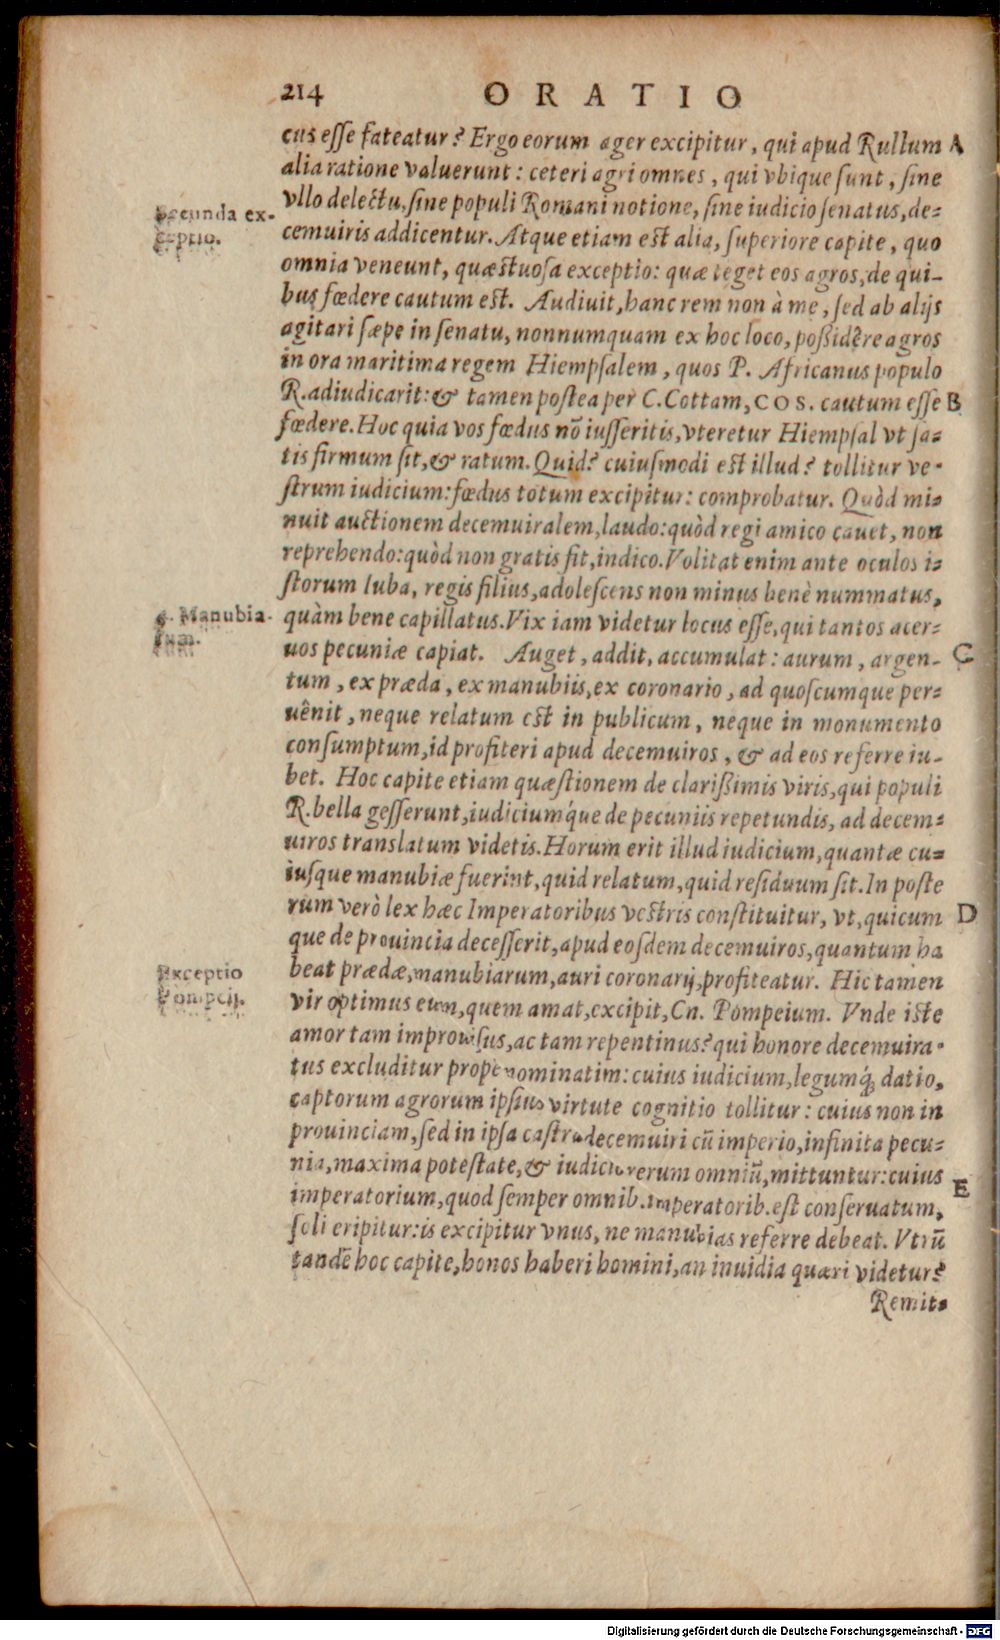 214 ORATIO
cus esse fateatur? Ergo eorum ager excipitur, qui apud Rullum A
alia ratione valuerunt: ceteri agri omnes, qui vbique sunt, sine
vllo delectu, sine populi Romani notione, sine iudicio senatus, de-
Secunda ex-
ceptio.
cemuiris addicentur. Atque etiam est alia, superiore capite, quo
omnia veneunt, quæstuosa exceptio: quæ teget eos agros, de qui-
bus fœdere cautum est. Audiuit, hanc rem non à me, sed ab alijs
agitari sæpe in senatu, nonnumquam ex hoc loco, possidêre agros
in ora maritima regem Hiempsalem, quos P. Africanus populo
R. adiudicarit: & tamen postea per C. Cottam, COS. cautum esse B
fœdere. Hoc quia vos fœdus nō iusseritis, vteretur Hiempsal vt sa-
tis firmum sit, & ratum. Quid? cuiusmodi est illud? tollitur ve-
strum iudicium: fœdus totum excipitur: comprobatur. Quòd mi-
nuit auctionem decemuiralem, laudo: quòd regi amico cauet, non
reprehendo: quòd non gratis fit, indico. Volitat enim ante oculos i-
storum Iuba, regis filius, adolescens non minus benè nummatus,
4. Manubia-
rum.
quàm bene capillatus. Vix iam videtur locus esse, qui tantos acer-
uos pecuniæ capiat. Auget, addit, accumulat: aurum, argen- C
tum, ex præda, ex manubiis, ex coronario, ad quoscumque per-
uênit, neque relatum est in publicum, neque in monumento
consumptum, id profiteri apud decemuiros, & ad eos referre iu-
bet. Hoc capite etiam quæstionem de clarissimis viris, qui populi
R. bella gesserunt, iudiciumq́ue de pecuniis repetundis, ad decem-
uiros translatum videtis. Horum erit illud iudicium, quantæ cu-
iusque manubiæ fuerint, quid relatum, quid residuum sit. In poste
rum verò lex hæc Imperatoribus vestris constituitur, vt, quicum D
que de prouincia decesserit, apud eosdem decemuiros, quantum ha
Exceptio
Pompeij.
beat prædæ, manubiarum, auri coronarij, profiteatur. Hic tamen
vir optimus eum, quem amat, excipit, Cn. Pompeium. Vnde iste
amor tam improuisus, ac tam repentinus? qui honore decemuira-
tus excluditur prope nominatim: cuius iudicium, legumq́; datio,
captorum agrorum ipsius virtute cognitio tollitur: cuius non in
prouinciam, sed in ipsa castra decemuiri cū imperio, infinita pecu-
nia, maxima potestate, & iudicio rerum omniū, mittuntur: cuius
imperatorium, quod semper omnib. imperatorib. est conseruatum, E
soli eripitur: is excipitur vnus, ne manubias referre debeat. Vtrū
tandē hoc capite, honos haberi homini, an inuidia quæri videtur?
Remit-
Digitalisierung gefördert durch die Deutsche Forschungsgemeinschaft - DFG